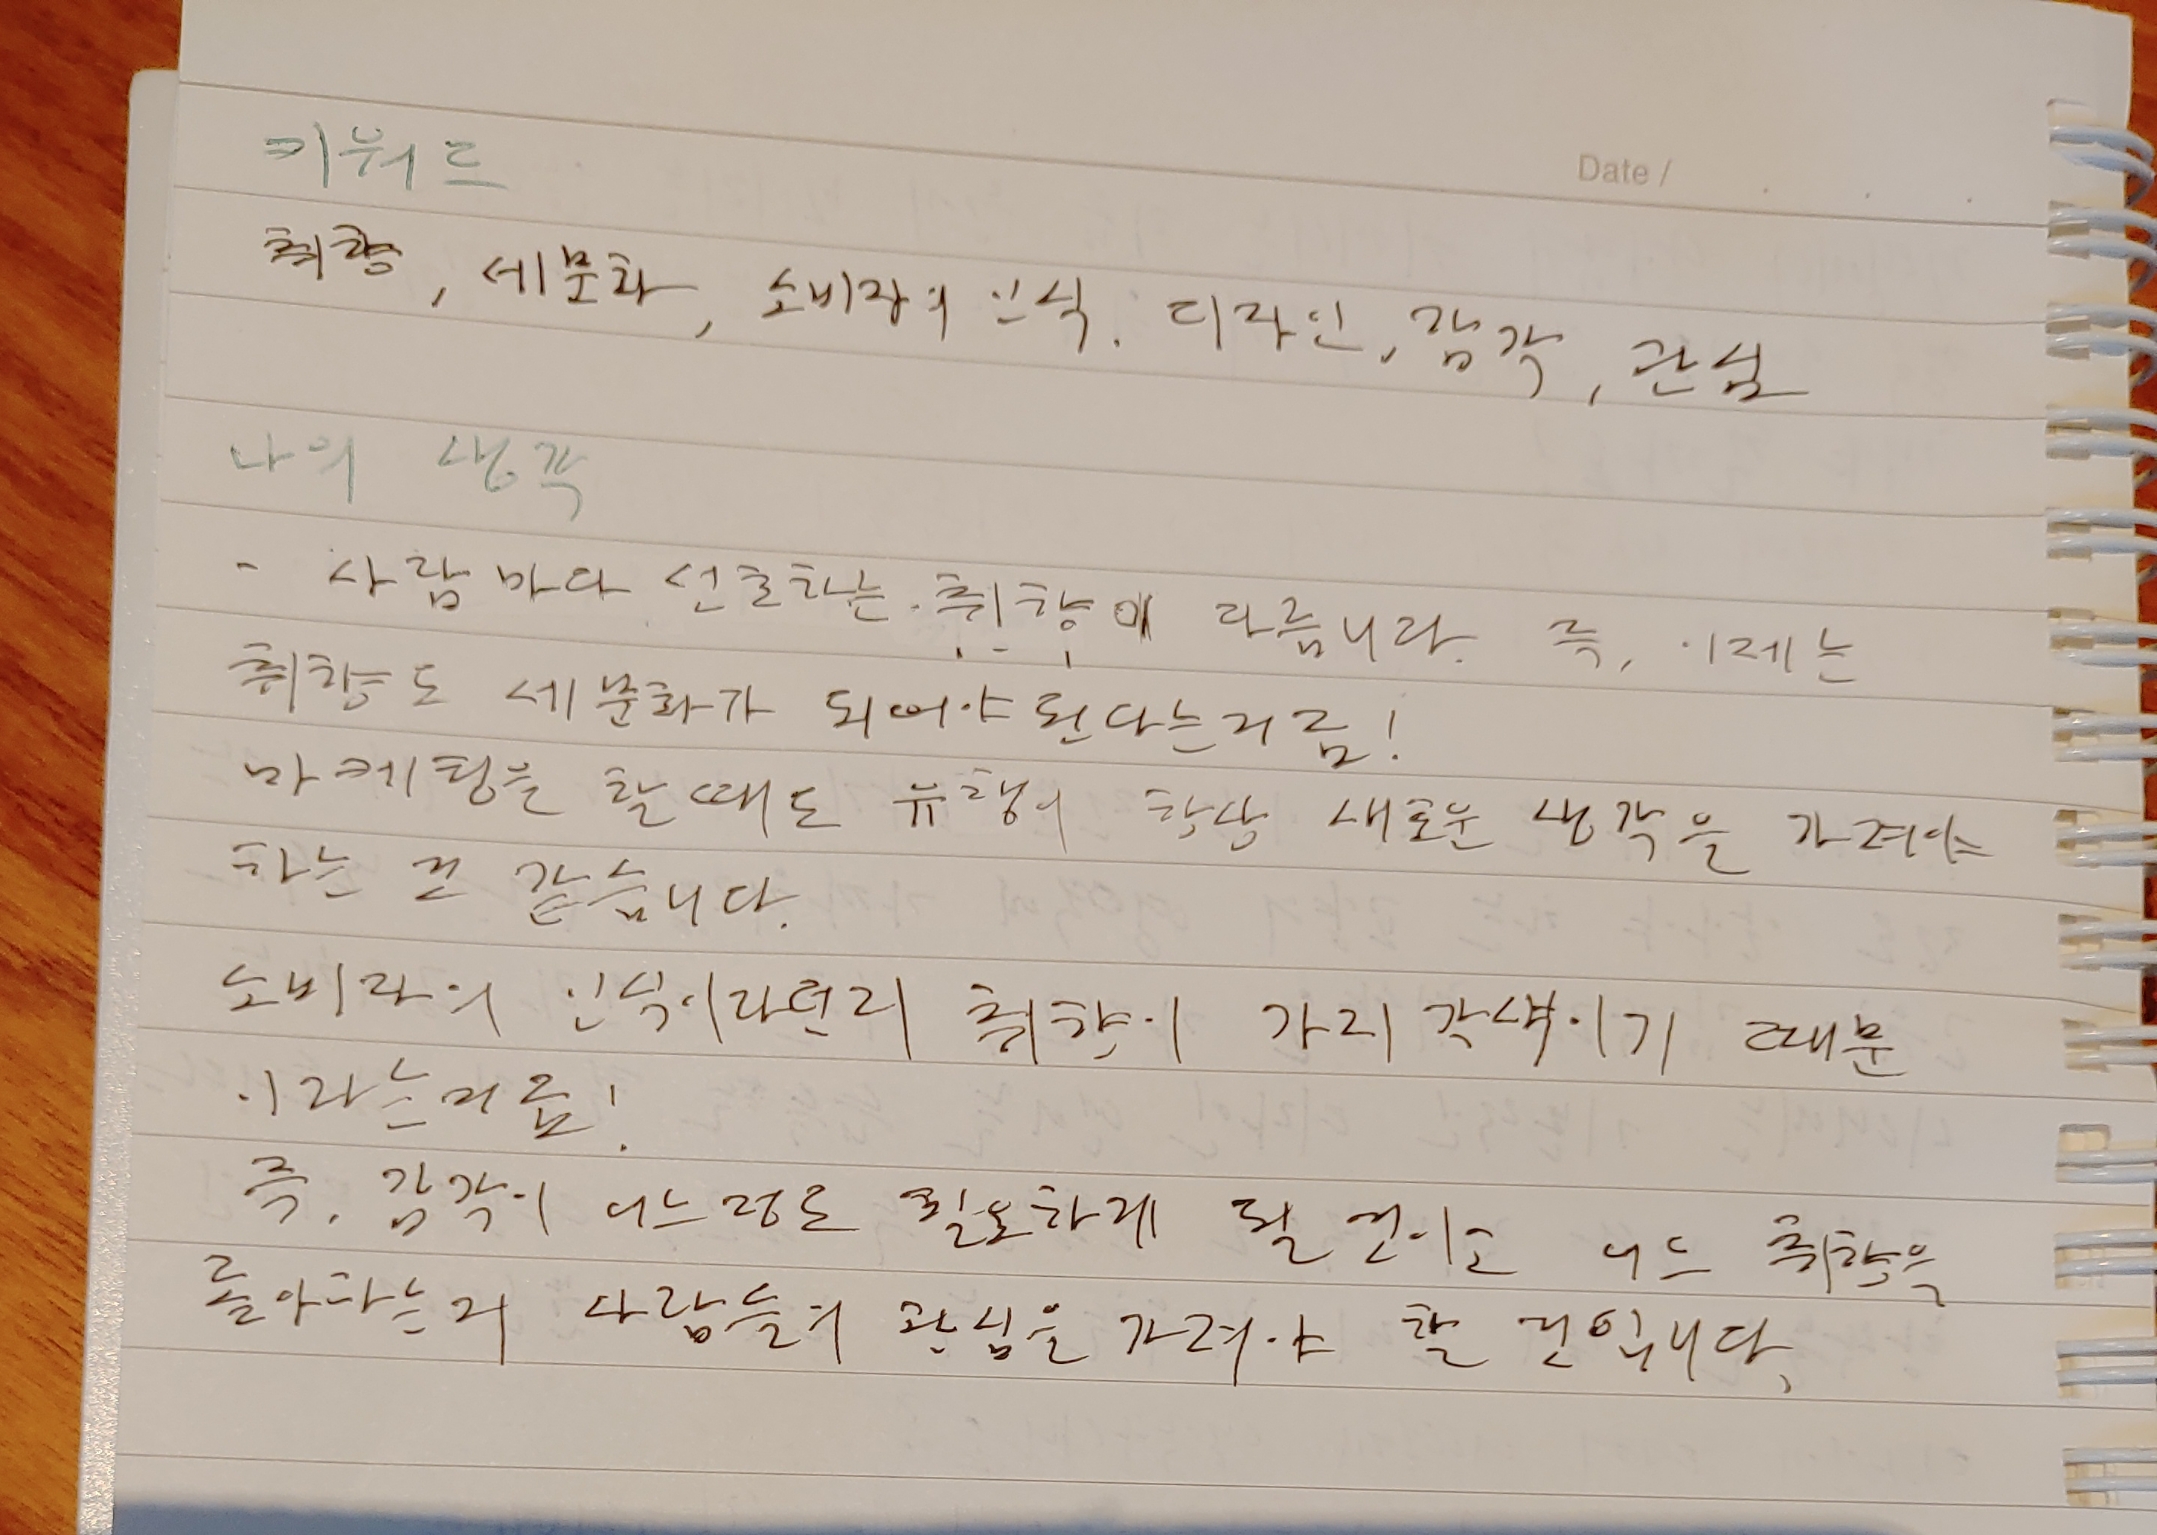 키워드
Date /
취향, 세분화, 소비자의 인식. 디자인, 감각, 관심
나의 생각
- 사람마다 선호하는 취향이 다릅니다. 즉, 이제는
취향도 세분화가 되어야 된다는거죠!
마케팅을 할때도 유행이 항상 새로운 생각을 가져야
하는 것 같습니다.
소비자의 인식이라던지 취향이 가지각색이기 때문
이라는거죠!
즉, 감각이 어느정도 필요하게 될 것이고 어느 취향을
좋아하는지 사람들의 관심을 가져야 할 것입니다.